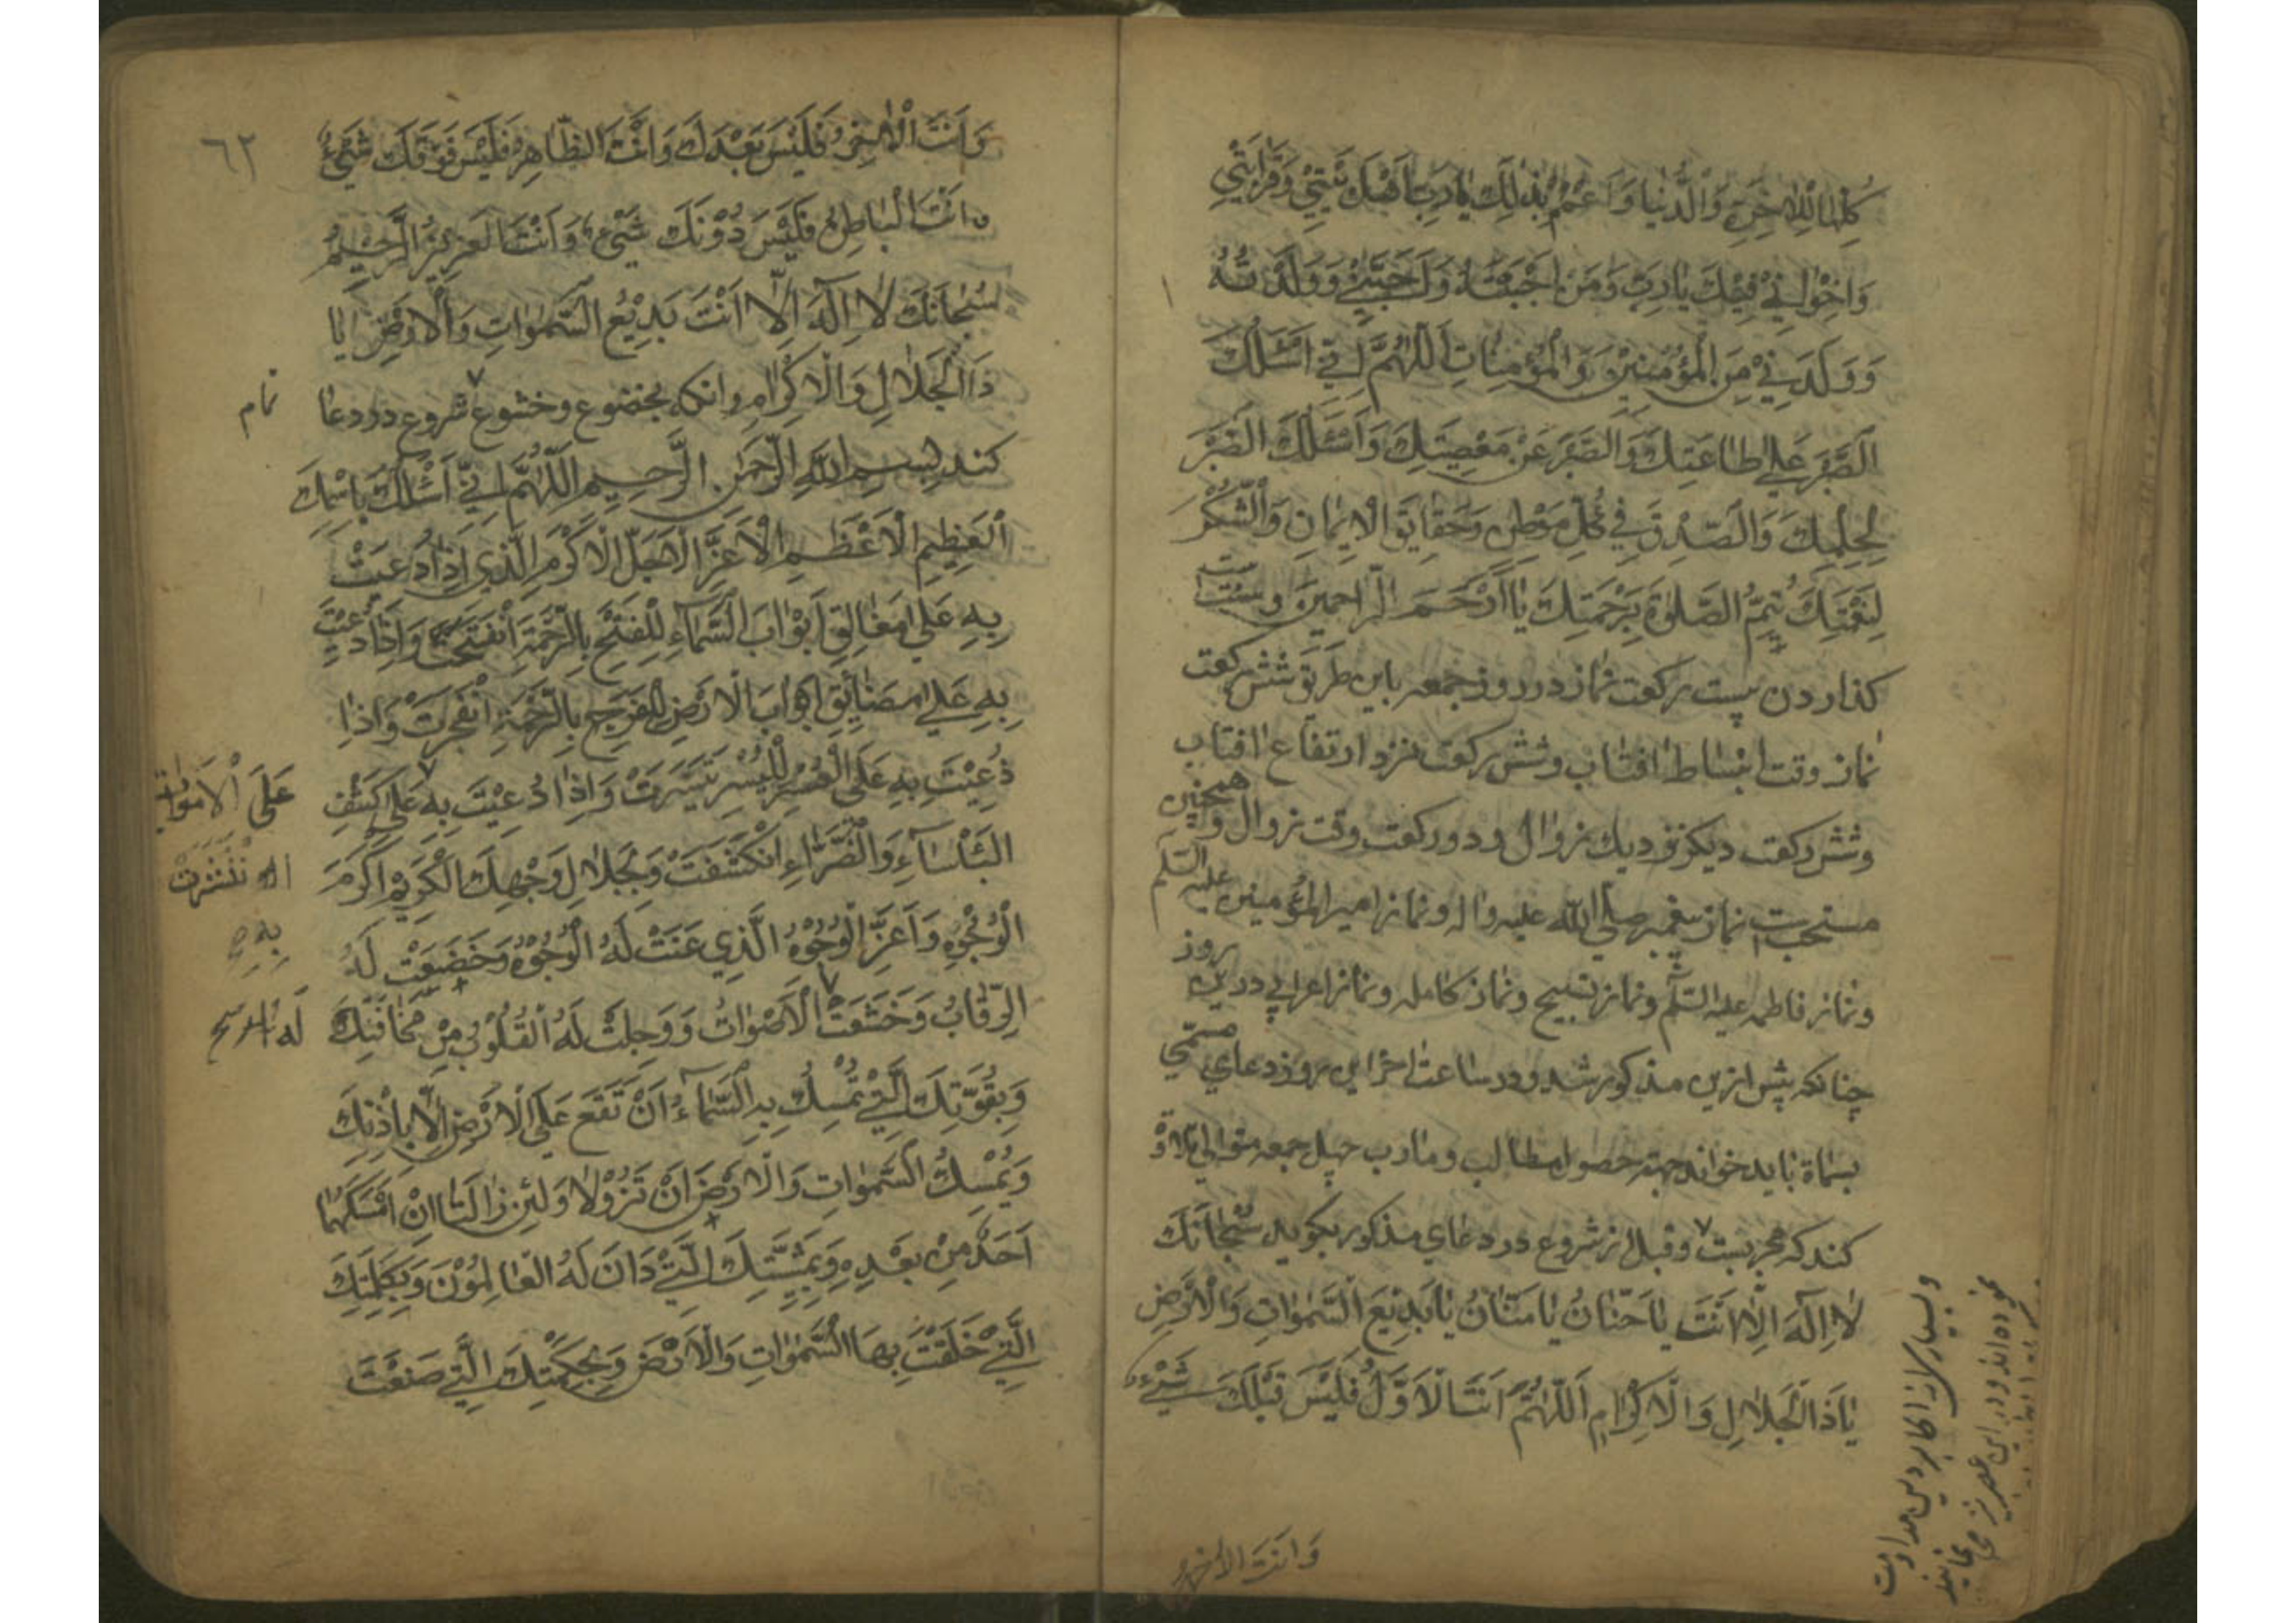 كلها للاخرة والدنيا وَاعمم بذلك يا رب اهل بيتي وَقرابتي
وَاخواني فيك يا رب وَمن احببته وَاحبني وَولدته
وَولدني من المؤمنين وَالمؤمنات اللهم اني اسئلك
الصبر علي طاعتك وَالصبر عن معصيتك وَاسئلك الصبر
لحكمك وَالصدق في كل موطن وحقايق الايمان وَالشكر
لنعمتك تتم الصلوة برحمتك يا ارحم الراحمين وسنت است
كذاردن بيست ركعت نماز در روز جمعه باين طريق شش ركعت
نماز وقت انبساط افتاب وشش ركعت نزد ارتفاع افتاب
وشش ركعت ديكر نزديك بزوال و دو ركعت وقت زوال و همچنين
مستحب است نماز پيغمبر صلي الله عليه واله ونماز امير المؤمنين عليه السلم
ونماز فاطمه عليه السلم ونماز تسبيح ونماز كامله ونماز اعرابي درين روز
چنانكه پيش ازين مذكور شد ودر ساعت اخر اين روز دعاي مسمي
بسماة بايد خواند جهة حصول مطالب ومارب چهل جمعه متوالي تلاوة
كند كه مجربست وقبل از شروع در دعاي مذكور بكويد سُبْحانَكَ
لا اِلَهَ اِلا اَنْتَ يا حَنّانُ يا مَنّانُ يا بَدِيعَ السَّمواتِ وَالْاَرْضِ
يا ذَا الْجَلالِ وَالْاِكْرامِ اَللّهُمَّ اَنْتَ الْاَوَّلُ فَلَيْسَ قَبْلَكَ شَيْءٌ
وَانت الاخر
وبسيار از اكابر دين مداومت
نموده اند ودر اين عصر نيز مي نمايند
٦٢
وَاَنْتَ الْاخِرُ فَلَيْسَ بَعْدَكَ وَاَنْتَ الظّاهِرُ فَلَيْسَ فَوْقَكَ شَيْءٌ
وانْتَ الْباطِنُ فَلَيْسَ دُوْنَكَ شَيْءٌ وَاَنْتَ الْعَزِيزُ الرَّحِيمُ
سُبْحانَكَ لا اِلهَ اِلّا اَنْتَ بَدِيْعُ السَّمواتِ وَالْاَرْضِ يا
ذَا الْجَلالِ وَالْاِكْرامِ وانكه بخضوع وخشوع شروع در دعا
تمام
كند بِسمِ اللهِ الرَّحمنِ الرَّحِيمِ اَللّهُمَّ اِنّي اَسْئَلُكَ بِاسْمِكَ
الْعَظِيْمِ الْاَعْظَمِ الْاَعَزِّ الْاَجَلِّ الْاَكْرَمِ الَّذِي اِذا دُعِيْتَ
بِهِ عَلي مَغالِقِ اَبْوابِ السَّماءِ لِلْفَتْحِ بِالرَّحْمَةِ اَنْفَتَحَتْ وَاِذا دُعِيْتَ
بِهِ عَلي مَضايِقِ اَبْوابِ الْاَرْضِ لِلْفَرَجِ بِالرَّحْمَةِ انْفَرَجَتْ وَاِذا
دُعِيْتَ بِهِ عَلَى الْعُسْرِ لِلْيُسْرِ تَيَسَّرَتْ وَاِذا دُعِيْتَ بِهِ عَلي كَشْفِ
عَلَى الْاَمْواتِ
انتشرت
الْبَأْساءِ وَالضَّرّاءِ انْكَشَفَتْ وَبِجَلالِ وَجْهِكَ الْكَرِيْمِ اَكْرَمِ
الْوُجُوْهِ وَاَعَزِّ الْوُجُوْهِ الَّذِي عَنَتْ لَهُ الْوُجُوْهُ وَخَضَعَتْ لَهُ
بِهِ
الرِّقابُ وَخَشَعَتْ الْاَصْواتُ وَوَجِلَتْ لَهُ الْقُلُوْبُ مِنْ مَخافَتِكَ
لَهُ
وَبِقُوَّتِكَ الَّتِي تُمْسِكُ بِهِ السَّماءَ اَنْ تَقَعَ عَلَى الْاَرْضِ اِلّا بِاِذْنِكَ
وَتُمْسِكُ السَّمواتِ وَالْاَرْضَ اَنْ تَزُوْلا وَلَئِنْ زالَتا اِنْ اَمْسَكَهُما
اَحَدٌ مِنْ بَعْدِهِ وَبِمَشِيَّتِكَ الَّتِي دانَ لَهُ الْعالَمُوْنَ وَبِكَلِمَتِكَ
الَّتِي خَلَقْتَ بِهَا السَّمواتِ وَالْاَرْضَ وَبِحِكْمَتِكَ الَّتِي صَنَعْتَ